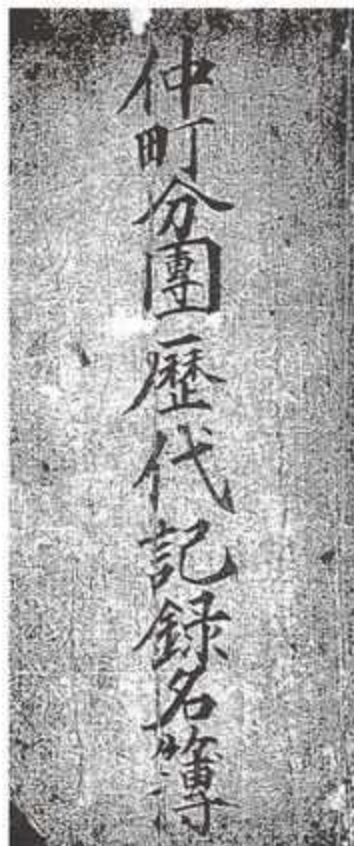 仲町分團歴代記録名簿